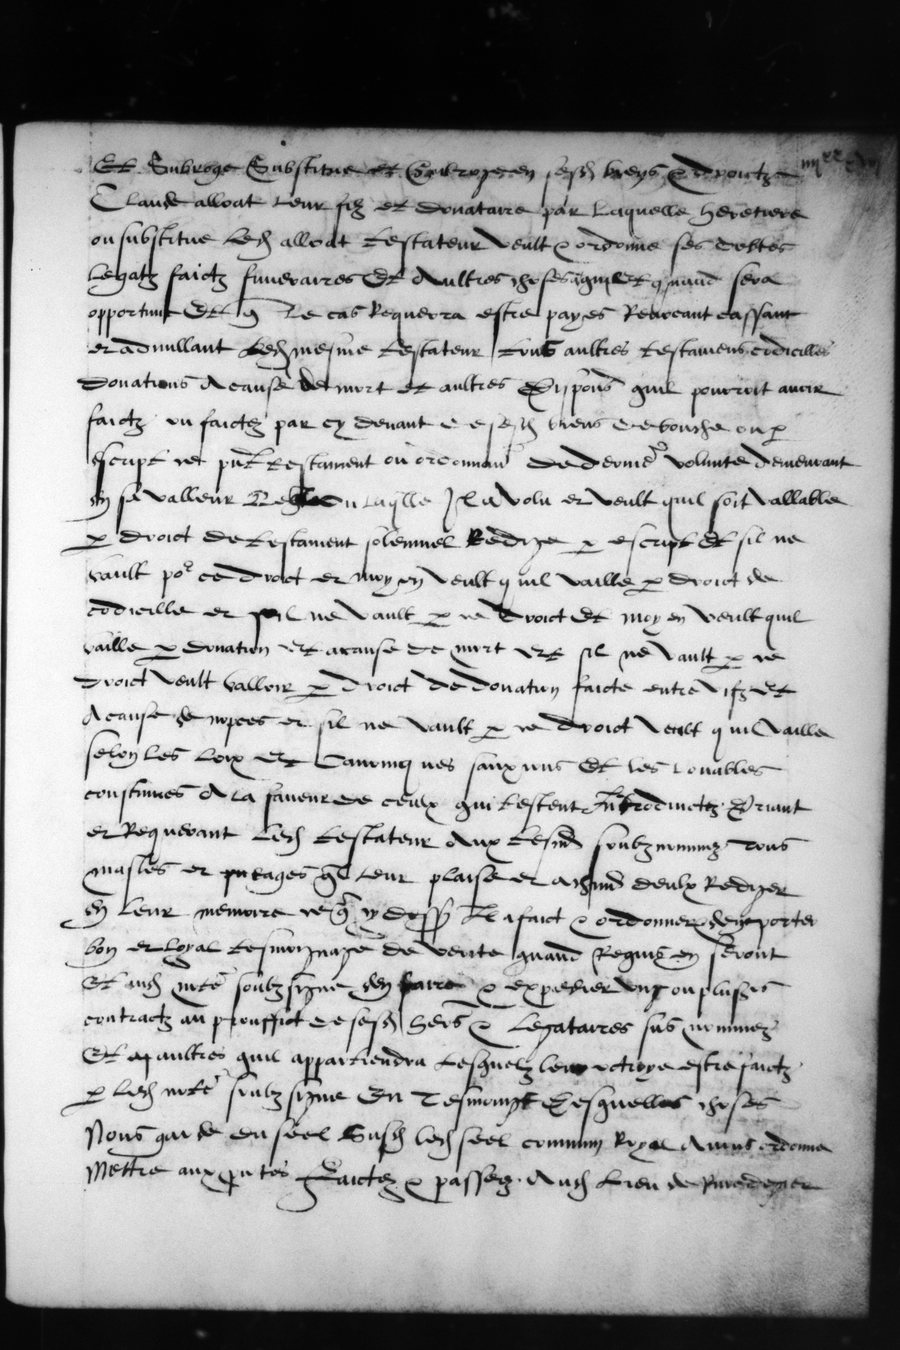 Et Subroge Substitue et Subroge en sesd biens & droictz
Claude alloat leur filz et donataire par laquelle heretiere
ou substitue led alloat testateur veult & ordonne ses debtes
legatz faictz funeraires Et Aultres choses quil et quand sera
opportune Et q le cas Requerra estre payes Revocant cassant
et adnullant led mesme testateur tous aultres testamens codicilles
donations A cause de mort et aultres quil pourroit avoir
faictz ou faictes par cy devant de sesd biens de bouche ou p
escript ce pnt testament ou ordonnan de dernie volunte demeurant
en sa valleur laqlle Il a volu et veult quil soit vallable
p droict de testament solemnel Redige p escript Et sil ne
vault po ce droict et moyen veult quil vaille p droict de
codicille et sil ne vault p ce droict Et moyen veult quil
vaille p donation et a cause de mort Et sil ne vault p ce
droict veult valloir p droict de donation faicte entre vifz Et
A cause de nopces et sil ne vault p ce droict veult quil vaille
selon les loix et canoniques sanxions Et les louables
coustumes A la faveur de ceulx qui testent Introductz Priant
et Requerant led testateur Aux tesmd soubznommez Tous
masles et pubages ql leur plaise et a chund deulx Rediger
en leur memoire ce q cy dess Il a faict & ordonner den porter
bon et loyal tesmoignage de verite quand Requis en seront
Et aud note soubz signe den faire & expedier ung ou plusrs
contractz au prouffict de sesd hers & legataires sus nommez
Et aultres quil appartiendra lesquelz leur octroye estre faictz
p led note soubz signe En Tesmoing Desquelles choses
Nous garde du seel Susd led seel commun Royal Avons ordonne
Mettre aux pntes Faictes & passees Aud lieu de